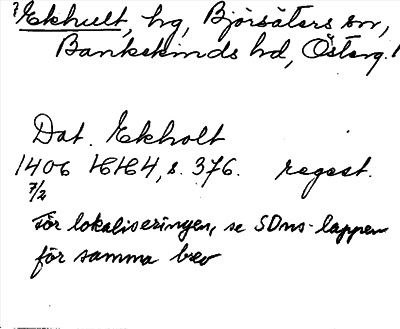 ? Ekhult, hg, Björsäters sn,
Bankekinds hd, Österg.!
Dat. Ekholt
1406 HH4, s. 376. regest.
7/2
För lokaliseringen, se SDns-lappen
för samma brev